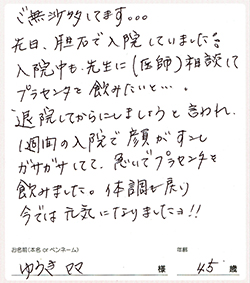 ご無沙汰してます。。。
先日、胆石で入院していました
入院中も先生に(医師)相談して
プラセンタを飲みたいと…。
退院してからにしましょうと言われ、
1週間の入院で顔がすごし
ガサガサしてて、急いでプラセンタを
飲みました。体調も戻り
今では元気になりましたョ!!
お名前(本名 or ペンネーム)
年齢
ゆうき ママ 様 45 歳